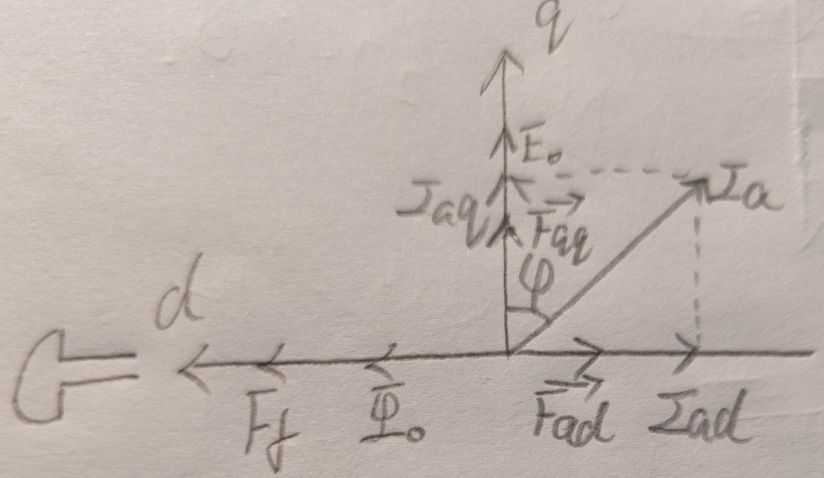 q
E₀
Iaq
Faq
Ia
φ
d
Ff
Φ₀
Fad
Iad